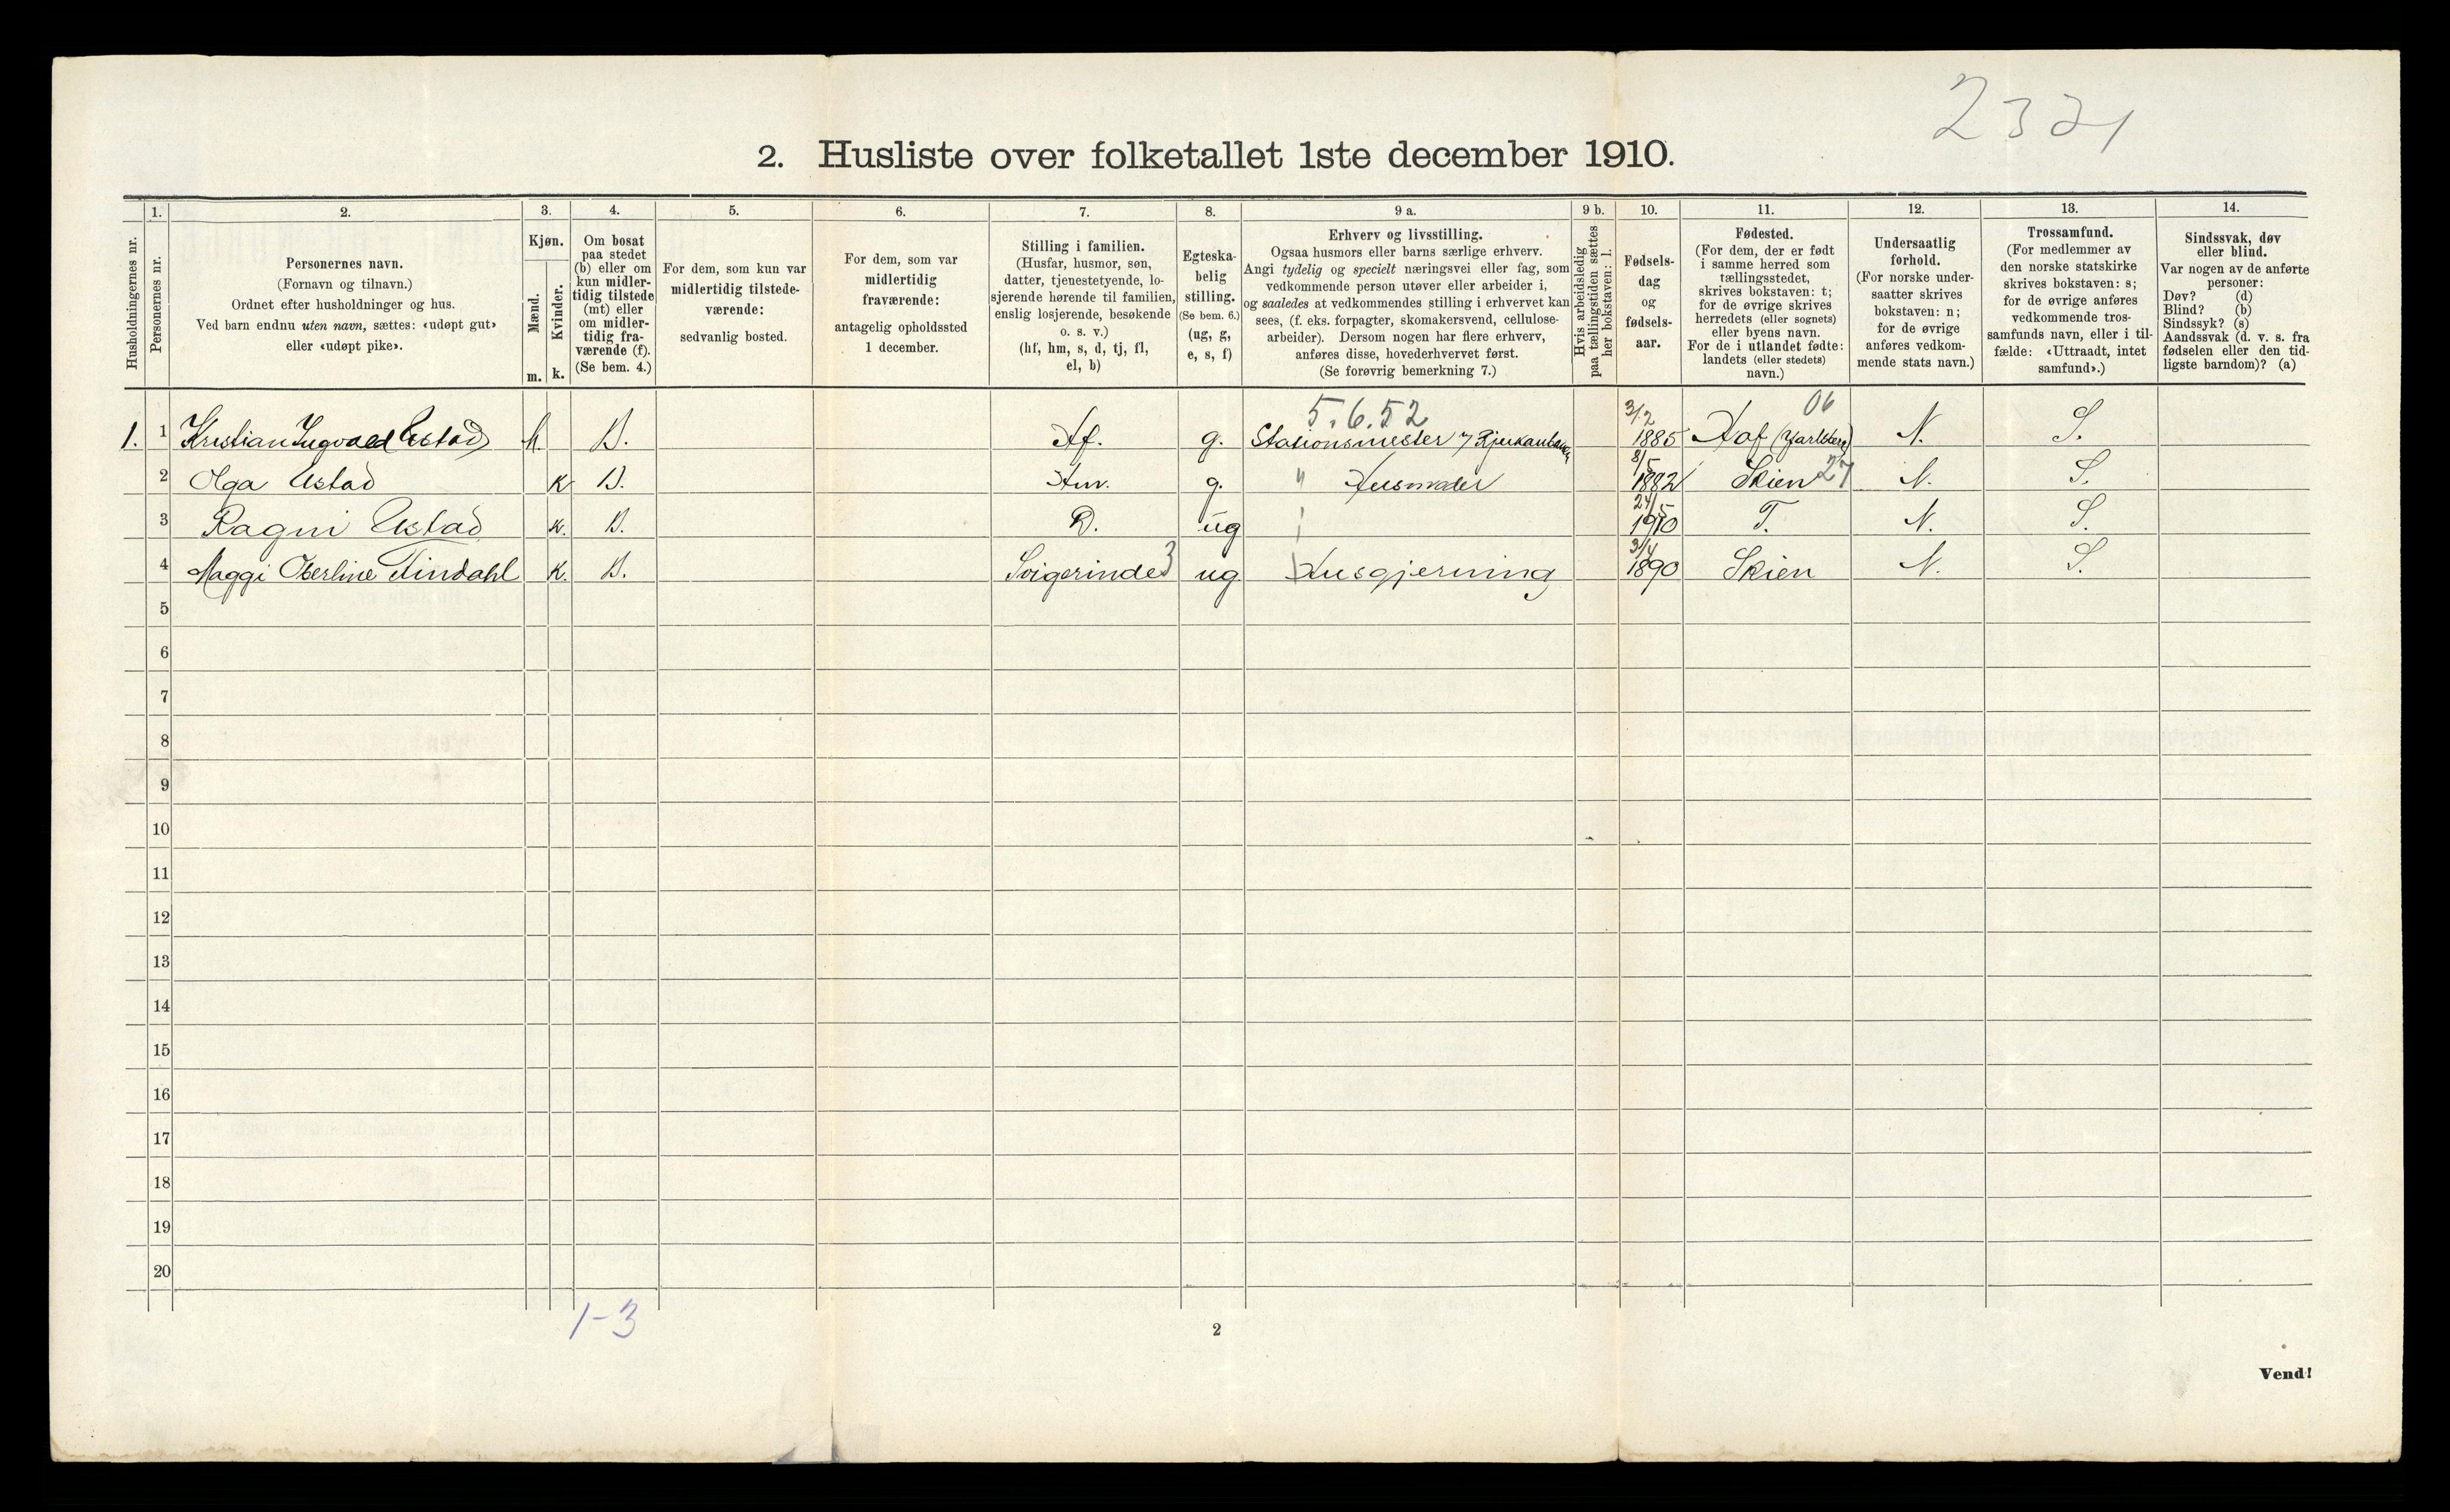 2321
2. Husliste over folketallet 1ste december 1910.
Husholdningernes nr.
1.
Personernes nr.
2.
Personernes navn.
(Fornavn og tilnavn.)
Ordnet efter husholdninger og hus.
Ved barn endnu uten navn, sættes: «udøpt gut»
eller «udøpt pike».
3.
Kjøn.
Mænd.
m.
Kvinder.
k.
4.
Om bosat
paa stedet
(b) eller om
kun midler-
tidig tilstede
(mt) eller
om midler-
tidig fra-
værende (f).
(Se bem. 4.)
5.
For dem, som kun var
midlertidig tilstede-
værende:
sedvanlig bosted.
6.
For dem, som var
midlertidig
fraværende:
antagelig opholdssted
1 december.
7.
Stilling i familien.
(Husfar, husmor, søn,
datter, tjenestetyende, lo-
sjerende hørende til familien,
enslig losjerende, besøkende
o. s. v.)
(hf, hm, s, d, tj, fl,
el, b)
8.
Egteska-
belig
stilling.
(Se bem. 6.)
(ug, g,
e, s, f)
9 a.
Erhverv og livsstilling.
Ogsaa husmors eller barns særlige erhverv.
Angi tydelig og specielt næringsvei eller fag, som
vedkommende person utøver eller arbeider i,
og saaledes at vedkommendes stilling i erhvervet kan
sees, (f. eks. forpagter, skomakersvend, cellulose-
arbeider). Dersom nogen har flere erhverv,
anføres disse, hovederhvervet først.
(Se forøvrig bemerkning 7.)
9 b.
Hvis arbeidsledig
paa tællingstiden sættes
her bokstaven: l.
10.
Fødsels-
dag
og
fødsels-
aar.
11.
Fødested.
(For dem, der er født
i samme herred som
tællingsstedet,
skrives bokstaven: t;
for de øvrige skrives
herredets (eller sognets)
eller byens navn.
For de i utlandet fødte:
landets (eller stedets)
navn.)
12.
Undersaatlig
forhold.
(For norske under-
saatter skrives
bokstaven: n;
for de øvrige
anføres vedkom-
mende stats navn.)
13.
Trossamfund.
(For medlemmer av
den norske statskirke
skrives bokstaven: s;
for de øvrige anføres
vedkommende tros-
samfunds navn, eller i til-
fælde: «Uttraadt, intet
samfund».)
14.
Sindssvak, døv
eller blind.
Var nogen av de anførte
personer:
Døv? (d)
Blind? (b)
Sindssyk? (s)
Aandssvak (d. v. s. fra
fødselen eller den tid-
ligste barndom)? (a)
5.6.52 3/2 06
1. 1 Kristian Ingvald Ustad M. B. Hf. g. Stationsmester v Rjukanbanen 1885 Hof (Jarlsberg) N. S.
2 Olga Ustad K B. Hm. g. " Husmoder 8/5 1882 Skien 27 N. S.
3 Ragni Ustad K. B. D. ug 24/5 1910 T. N. S.
4 Maggi Oberline Tindahl K. B. Svigerinde 3 ug Husgjerning 3/4 1890 Skien N. S.
5
6
7
8
9
10
11
12
13
14
15
16
17
18
19
20
1-3
2
Vend!